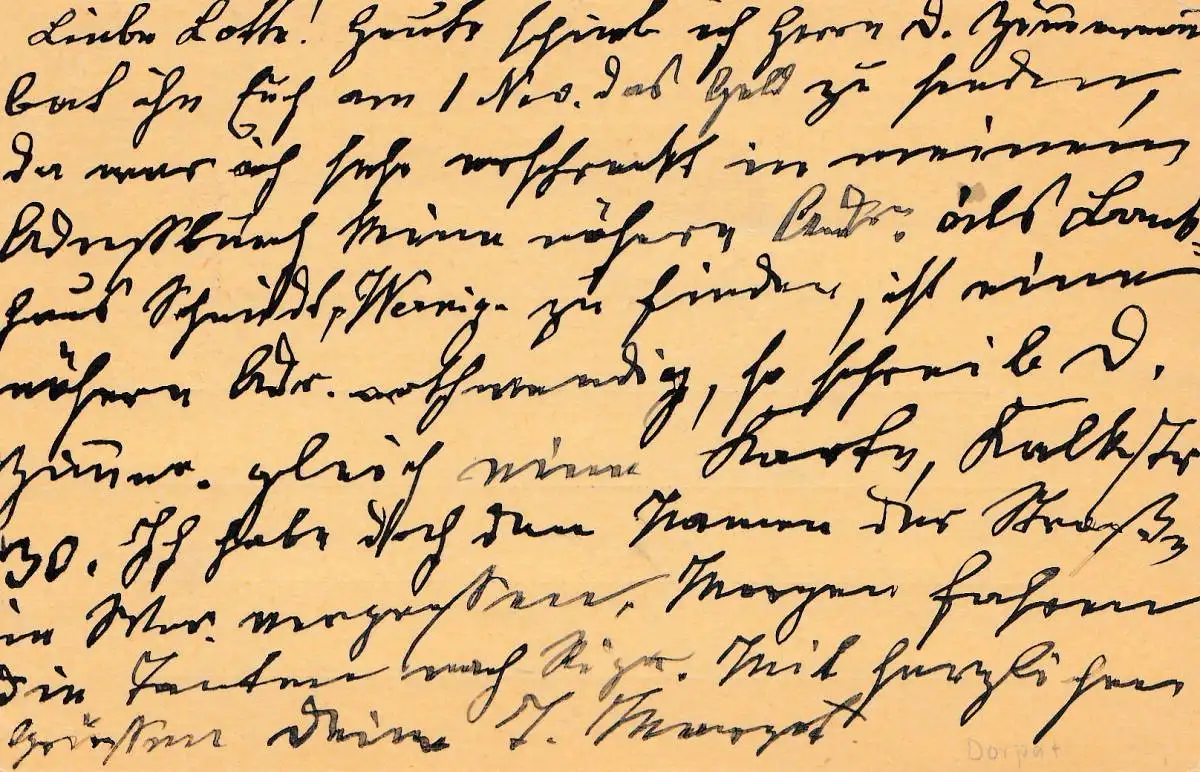 Liebe Lotte! Heute schrieb ich Herrn D. Zimmermann
bat ihn Euch am 1 Nov. das Geld zu senden,
da war ich sehr erschreckt in meinem
Adreßbuch keine nähere Adr. als Land-
haus Schmidt, Wernig. zu finden, ist eine
nähere Adr. nothwendig, so schreib D.
Zimmer. gleich eine Karte, Kalkstr
30. Ich habe doch den Namen der Straße
in Wer. vergessen. Morgen fahren
die Tanten nach Riga. Mit herzlichen
Grüssen Deine T. Margot
Dorpat